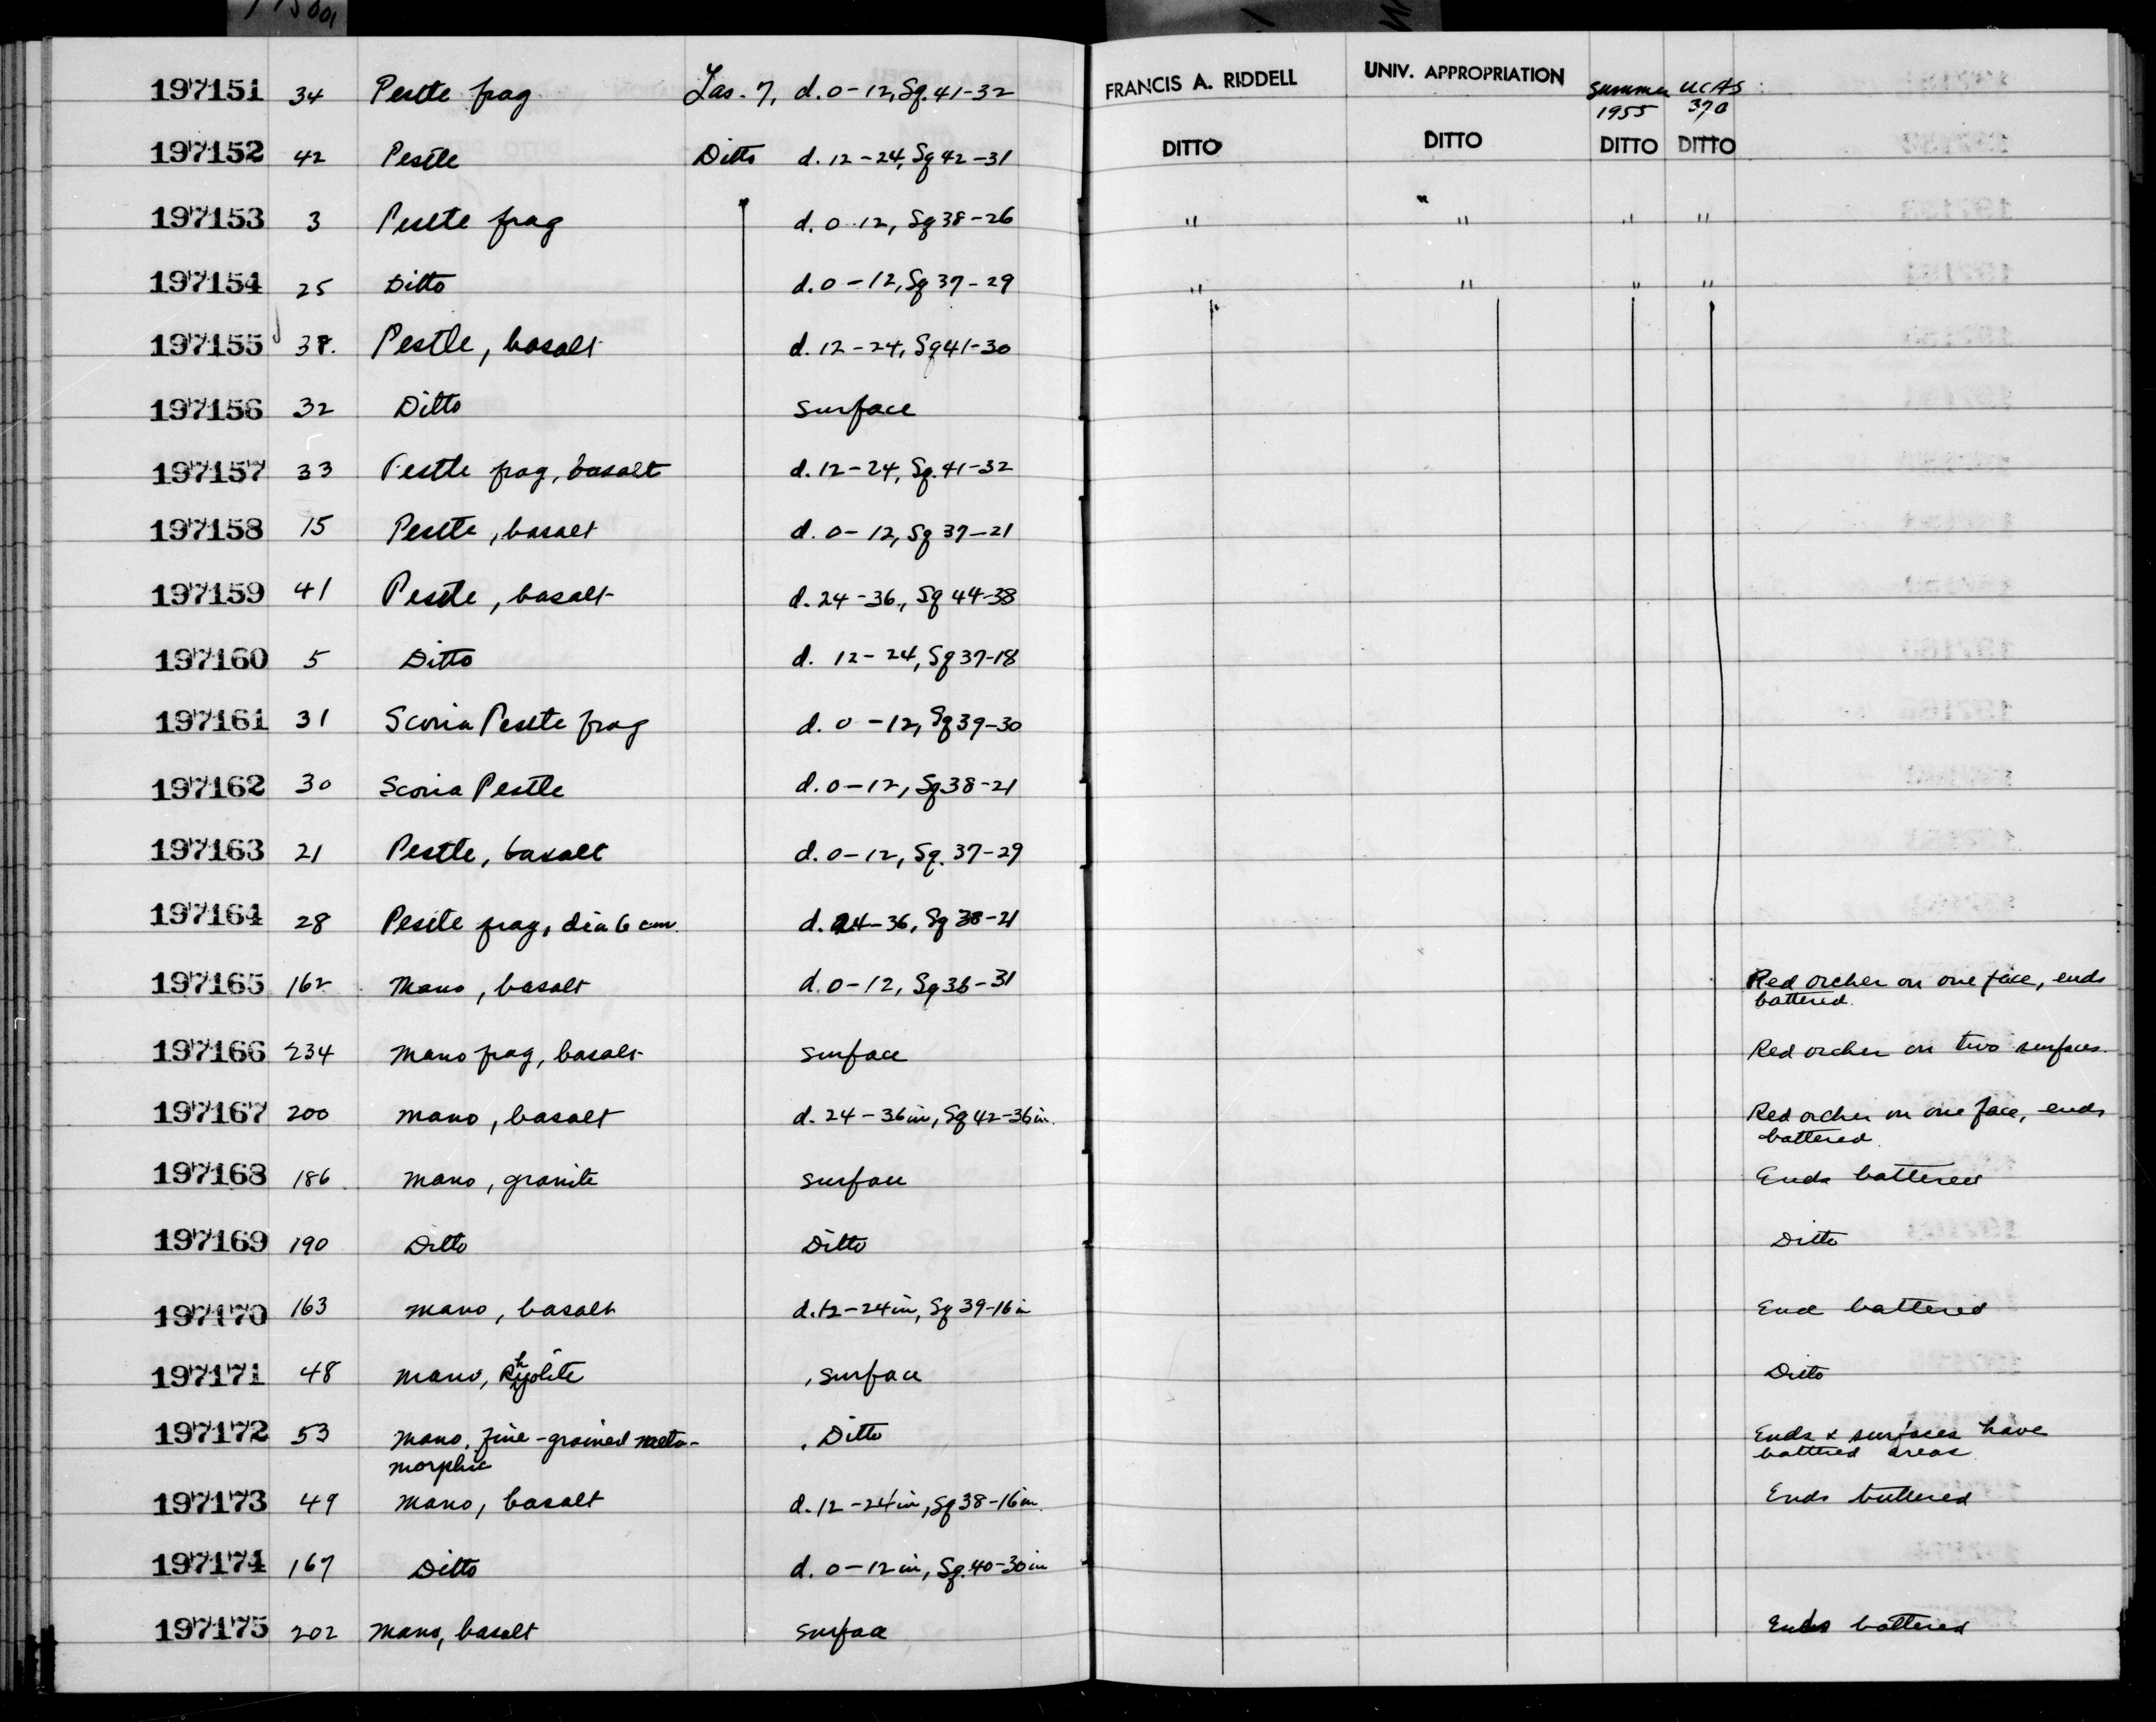 197151 34 Pestle frag Las. 7, d. 0-12, Sq. 41-32 FRANCIS A. RIDDELL UNIV. APPROPRIATION Summer 1955 UCAS 370
197152 42 Pestle Ditto d. 12-24, Sq 42-31 DITTO DITTO DITTO DITTO
197153 3 Pestle frag d. 0-12, Sq 38-26 " " " "
197154 25 Ditto d. 0-12, Sq 37-29 " " " "
197155 37. Pestle, basalt d. 12-24, Sq 41-30
197156 32 Ditto surface
197157 33 Pestle frag, basalt d. 12-24, Sq. 41-32
197158 15 Pestle, basalt d. 0-12, Sq 37-21
197159 41 Pestle, basalt d. 24-36, Sq 44-38
197160 5 Ditto d. 12-24, Sq 37-18
197161 31 Scoria Pestle frag d. 0-12, Sq 39-30
197162 30 Scoria Pestle d. 0-12, Sq 38-21
197163 21 Pestle, basalt d. 0-12, Sq. 37-29
197164 28 Pestle frag, dia 6 cm. d. 24-36, Sq 38-21
197165 162 Mano, basalt d. 0-12, Sq 36-31 Red orcher on one face, ends
battered.
197166 234 Mano frag, basalt surface Red orcher on two surfaces.
197167 200 Mano, basalt d. 24-36 in, Sq 42-36 in. Red orcher on one face, ends
battered.
197168 186 Mano, granite surface Ends battered
197169 190 Ditto Ditto Ditto
197170 163 Mano, basalt d. 12-24 in, Sq 39-16 in End battered
197171 48 Mano, Rhyolite surface Ditto
197172 53 Mano, fine-grained meta- Ditto Ends & surfaces have
morphic battered areas
197173 49 Mano, basalt d. 12-24 in, Sq 38-16 in. Ends battered
197174 167 Ditto d. 0-12 in, Sq. 40-30 in
197175 202 Mano, basalt surface Ends battered